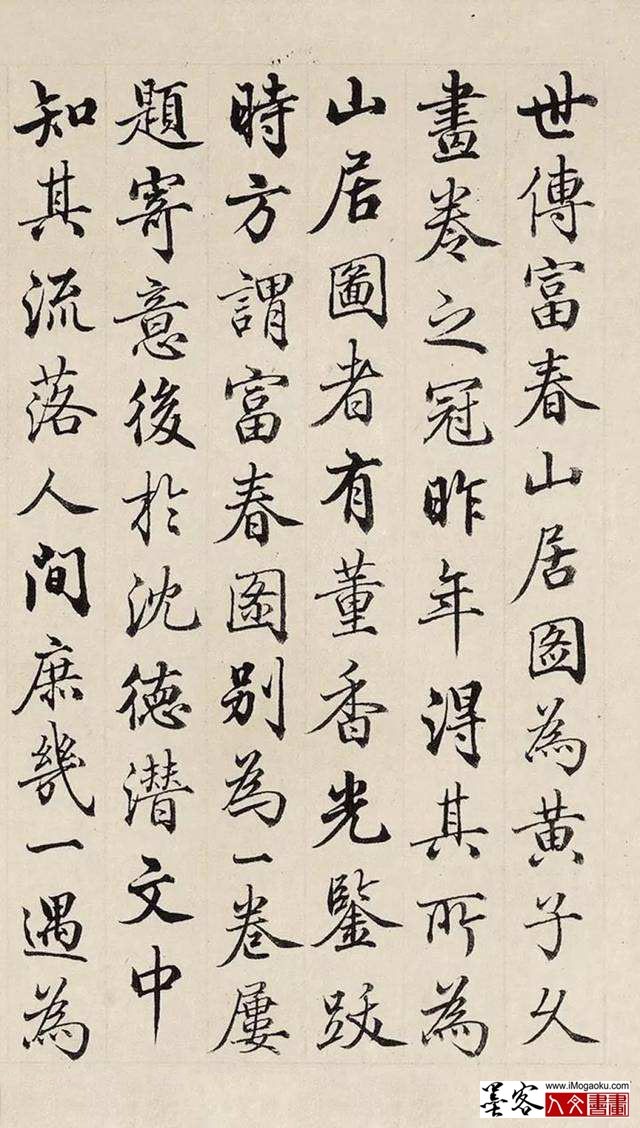 世傳富春山居圖為黄子久
畫卷之冠昨年得其所為
山居圖者有董香光鑒跋
時方謂富春圖别為一卷屢
題寄意後於沈德潛文中
知其流落人間庶幾一遇為
墨客
www.iMogaoku.com
人文書畫